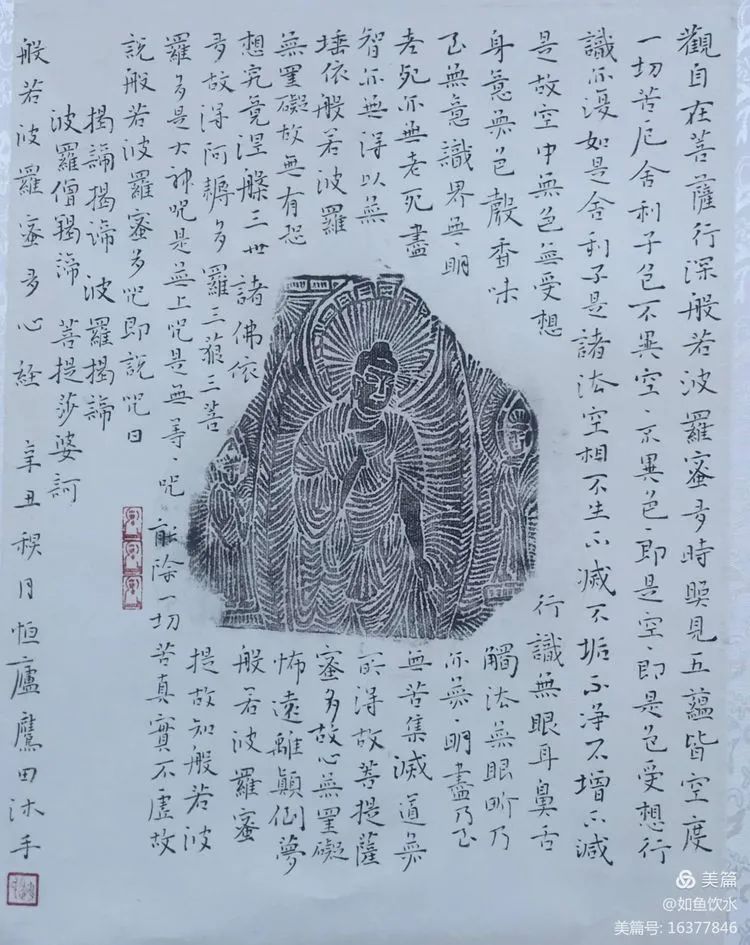 觀自在菩薩行深般若波羅蜜多時照見五蘊皆空度
一切苦厄舍利子色不異空、不異色、即是空、即是色受想行
識亦復如是舍利子是諸法空相不生不滅不垢不淨不增不減
是故空中無色無受想行識無眼耳鼻舌
身意無色聲香味觸法無眼界乃
至無意識界無、明亦無、明盡乃至
老死亦無老死盡無苦集滅道無
智亦無得以無所得故菩提薩
埵依般若波羅蜜多故心無罣礙
無罣礙故無有恐怖遠離顛倒夢
想究竟涅槃三世諸佛依般若波羅蜜
多故得阿耨多羅三藐三菩提故知般若波
羅多是大神咒是無上咒是無等、咒能除一切苦真實不虛故
說般若波羅蜜多咒即說咒曰
揭諦揭諦 波羅揭諦
波羅僧揭諦 菩提莎婆訶
般若波羅蜜多心經 辛丑秋月恒廬鷹田沐手
美篇
@如鱼饮水
美篇号: 16377846